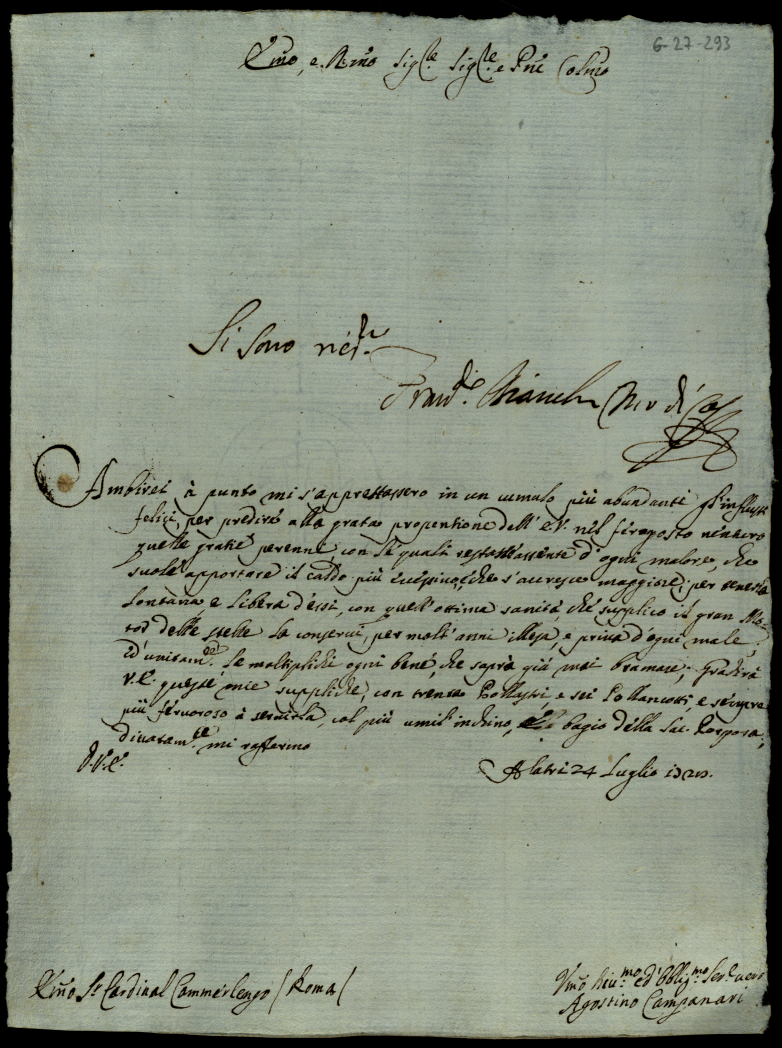 6-27-293
Emo, e Rmo Sig.re Sig.re e Pne Colmo
Si sono
Fran.co Bianch
Ambirei à punto mi s'apprettassero in un cumulo più abundanti gl'influssi
felici, per predire alla grata propentione dell' E.V. nel
quelle gratie perenni, con le quali d'ogni malore, che
suole apportare il caldo più che s'accresce maggiore, per tenerla
lontana e libera d'essi, con quell'ottima sanità, che supplico il gran Mo-
tor delle stelle la conservi, per molt'anni illesa, e priva d'ogni male,
ed'unitam.te le moltiplichi ogni bene, che saprà già mai bramare; Gradirà
V.E. queste mie suppliche, con trenta Pollastri, e sei Pollancotti, e sempre
più fervoroso à servirla, col più umil inchino, bagio della Sac. Porpora,
divotam.te mi rassegno
D.V.E.
Alatri 24 Luglio
Emo S.r Cardinal Cammerlengo / Roma /
Umo Divmo ed'Obligmo Ser.e vero
Agostino Campanari